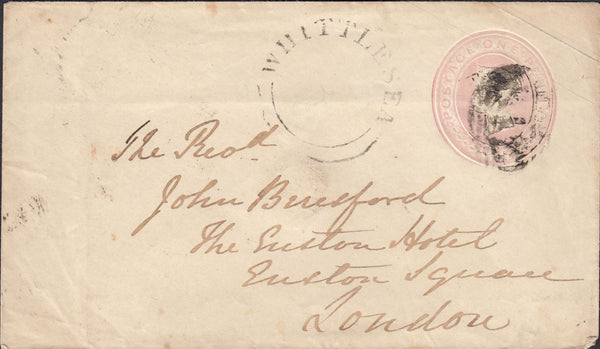 WHITTLESEA
POSTAGE ONE
The Revd.
John Beresford
The Euston Hotel
Euston Square
London